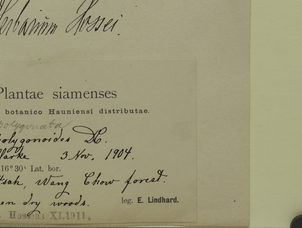 Herbarium Hossei.
Plantae siamenses
botanico Hauniensi distributae.
polygonata
polygonoides DC.
Clarke 3 Nov, 1904.
16°30' Lat. bor.
tsah, Wang Chow forest.
en dry woods. leg. E. Lindhard.
Hosseus XI.1911,